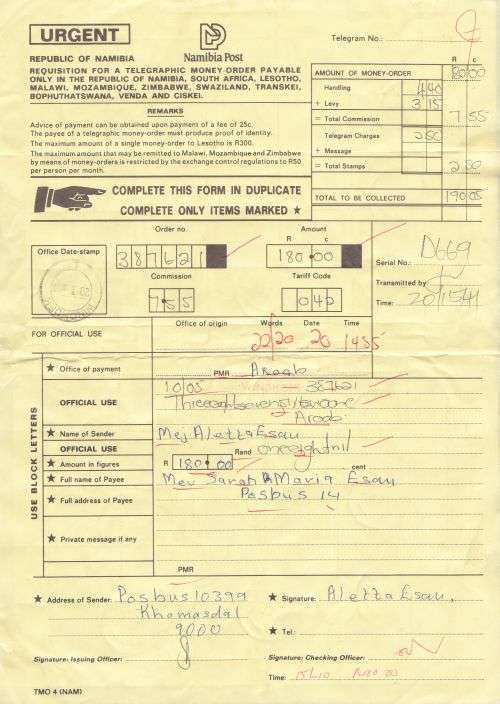 URGENT
NamibiaPost
Telegram No.:
REPUBLIC OF NAMIBIA
REQUISITION FOR A TELEGRAPHIC MONEY-ORDER PAYABLE
ONLY IN THE REPUBLIC OF NAMIBIA, SOUTH AFRICA, LESOTHO,
MALAWI, MOZAMBIQUE, ZIMBABWE, SWAZILAND, TRANSKEI,
BOPHUTHATSWANA, VENDA AND CISKEI.
REMARKS
Advice of payment can be obtained upon payment of a fee of 25c.
The payee of a telegraphic money-order must produce proof of identity.
The maximum amount of a single money-order to Lesotho is R300.
The maximum amount that may be remitted to Malawi, Mozambique and Zimbabwe
by means of money-orders is restricted by the exchange control regulations to R50
per person per month.
R c
AMOUNT OF MONEY-ORDER 180 00
Handling 4 40
+ Levy 3 15
= Total Commission 7 55
Telegram Charges 2 50
+ Message
= Total Stamps 2 50
TOTAL TO BE COLLECTED 190 05
COMPLETE THIS FORM IN DUPLICATE
COMPLETE ONLY ITEMS MARKED ★
Office Date-stamp
Order no.
387621
Amount
R c
180 00
Commission
7 55
Tariff Code
042
Serial No.: D669
Transmitted by
Time: 20/1541
FOR OFFICIAL USE
Office of origin Words Date Time
22/20 20 1455
USE BLOCK LETTERS
★ Office of payment PMR Aroab
OFFICIAL USE
10/05 387621
Aroab
★ Name of Sender Mej Aletta Esau
OFFICIAL USE Rand oneeightnil
★ Amount in figures R 180 00 cent
★ Full name of Payee Mev Sarah Maria Esau
★ Full address of Payee Posbus 14
★ Private message if any
PMR
★ Address of Sender: Posbus 10399
Khomasdal
9000
★ Signature: Aletta Esau.
★ Tel.:
Signature: Issuing Officer:
Signature: Checking Officer:
Time:
TMO 4 (NAM)